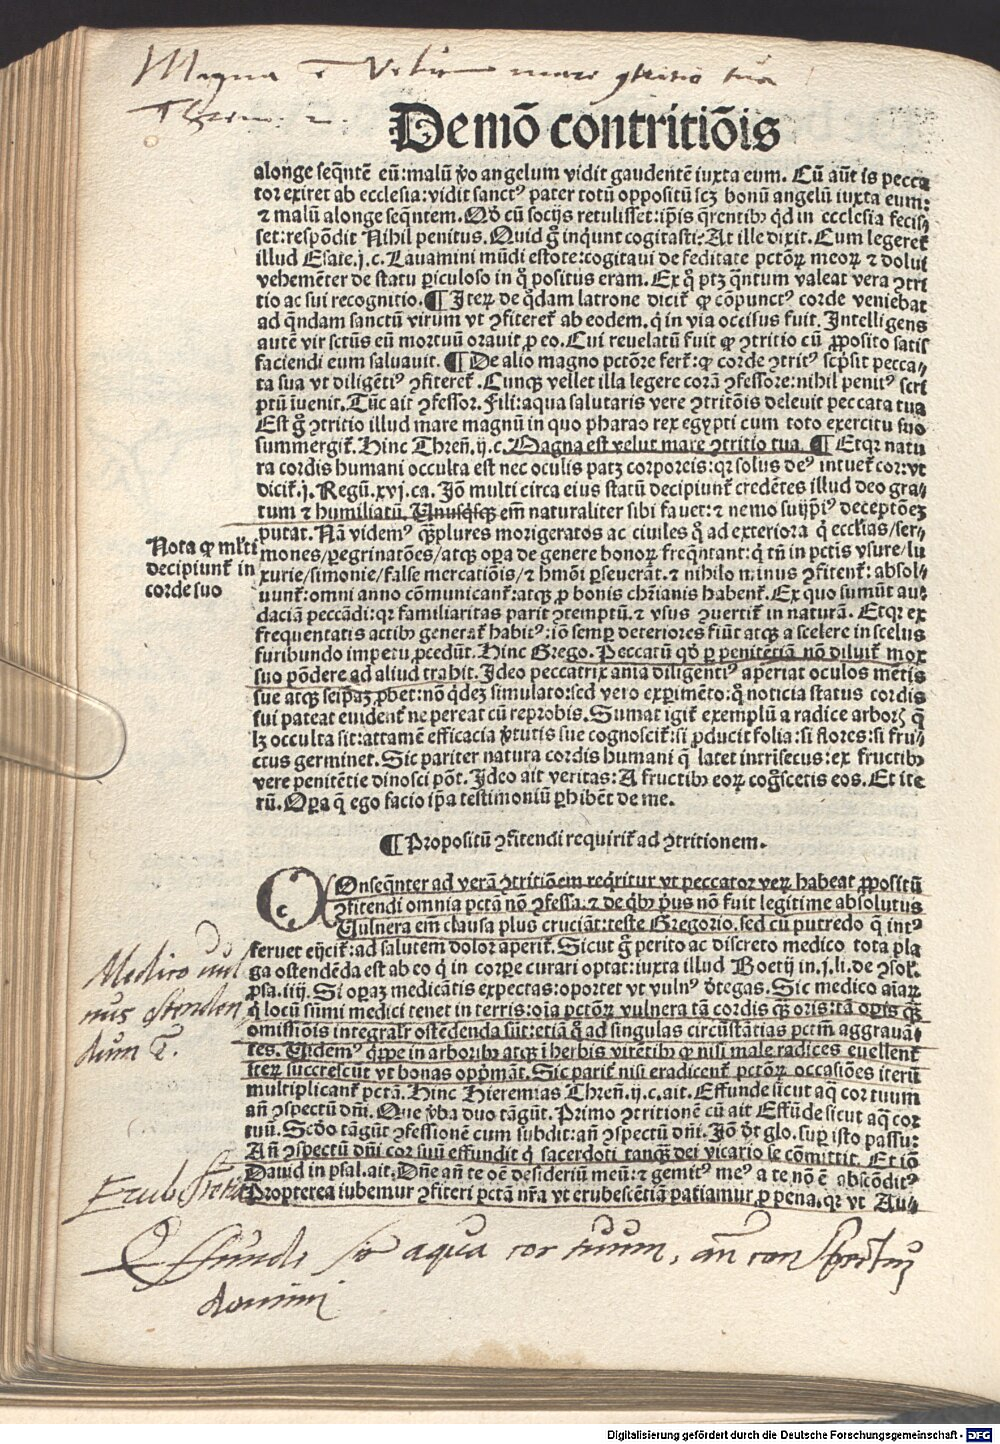 Magna e Velut mare ꝯtritio tua
Thren. 2.
De mō contritiōis
alonge seq̄ntē eū: malū ꝟo angelum vidit gaudentē iuxta eum. Cū aūt is pecca
tor exiret ab ecclesia: vidit sanctꝰ pater totū oppositū scꝫ bonū angelū iuxta eum:
⁊ malū alonge seq̄ntem. Qď cū socijs retulisset: ip̄is q̄rentibꝫ qd in ecclesia fecis⸗
set: respōdit Nihil penitus. Quid gͦ inq̄unt cogitasti? At ille dixit. Cum legeret̄
illud Esaie.j.c. Lauamini mūdi estote: cogitaui de feditate pctōꝝ meoꝝ ⁊ dolui
vehemēter de statu ꝑiculoso in q̊ positus eram. Ex q̊ ptꝫ q̄ntum valeat vera ꝯtri
tio ac sui recognitio. ¶ Iteꝝ de q̊dam latrone dicit̄ ꝙ cōpunctꝰ corde veniebat
ad q̄ndam sanctū virum vt ꝯfiteret̄ ab eodem. q̇ in via occisus fuit. Intelligens
autē vir sctūs eū mortuū orauit ꝓ eo. Cui reuelatū fuit ꝙ ꝯtritio cū ꝓposito satis
faciendi eum saluauit. ¶ De alio magno pctōre fert̄: ꝙ corde ꝯtritꝰ scp̄sit pecca⸗
ta sua vt diligētiꝰ ꝯfiteret̄. Cunqꝫ vellet illa legere corā ꝯfessore: nihil penitꝰ scri
ptū īuenit. Tūc ait ꝯfessor. Fili: aqua salutaris vere ꝯtritōnis deleuit peccata tua
Est gͦ ꝯtritio illud mare magnū in quo pharao rex egypti cum toto exercitu suo
summergit̄. Hinc Thren̄.ij.c. Magna est velut mare ꝯtritio tua. ¶ Etqꝛ natu
ra cordis humani occulta est nec oculis patꝫ corporeis: qꝛ solus deꝰ intuet̄ cor: vt
dicit̄.j. Regū.xvj.ca. Iō multi circa eius statū decipiunt̄ credētes illud deo gra⸗
tum ⁊ humiliatū. Unusq̇sqꝫ em̄ naturaliter sibi fauet: ⁊ nemo suijp̄iꝰ deceptōeꝫ
putat. Nā videmꝰ q̄ꝫplures morigeratos ac ciuiles q̊ ad exteriora q̇ eccl̄ias/ser⸗
mones/ꝑegrinatōes/atqꝫ oꝑa de genere bonoꝝ freq̄ntant: q̇ tn̄ in pctis vsure/lu
xurie/simonie/false mercatiōis/⁊ hmōi ꝑseuerāt. ⁊ nihilo minus ꝯfitent̄: absol⸗
uunt̄: omni anno cōmunicant̄: atqꝫ ꝓ bonis chr̄ianis habent̄. Ex quo sumūt au⸗
daciā peccādi: qꝛ familiaritas parit ꝯtemptū. ⁊ vsus ꝯuertit̄ in naturā. Etqꝛ ex
frequentatis actibꝫ generat̄ habitꝰ: iō semꝑ deteriores fiūt atqꝫ a scelere in scelus
furibundo impetu ꝓcedūt. Hinc Grego. Peccatū qď ꝑ penitētiā nō diluit̄ mox
suo pōdere ad aliud trahit. Ideo peccatrix anīa diligentiꝰ aperiat oculos mētis
sue atqꝫ seip̄aꝫ ꝓbet: nō q̇deꝫ simulato: sed vero exꝑimēto: q̊ noticia status cordis
sui pateat euident̄ ne pereat cū reprobis. Sumat igit̄ exemplū a radice arboꝝ q̄
lꝫ occulta sit: attamē efficacia ꝟtutis sue cognoscit̄: si ꝓducit folia: si flores: si fru⸗
ctus germinet. Sic pariter natura cordis humani q̄ latet intrīsecus: ex fructibꝫ
vere penitētie dinosci pōt. Ideo ait veritas: A fructibꝫ eoꝝ cog̊scetis eos. Et ite
rū. Oꝑa q̄ ego facio ip̄a testimoniū ꝑhibēt de me.
Nota ꝙ ml̄ti
decipiunt̄ in
corde suo
¶ Propositū ꝯfitendi requirit̄ ad ꝯtritionem.
COnseq̄nter ad verā ꝯtritiōem req̇ritur vt peccator veꝝ habeat ꝓpositū
ꝯfitendi omnia pctā nō ꝯfessa. ⁊ de q̇bꝫ pͥus nō fuit legitime absolutus
Uulnera em̄ clausa plus cruciāt: teste Gregorio. sed cū putredo q̄ intꝰ
feruet eijcit̄: ad salutem dolor aperit̄. Sicut gͦ perito ac discreto medico tota pla
ga ostendēda est ab eo q̇ in corꝑe curari optat: iuxta illud Boetij in.j.li. de ꝯsol.
ꝓsa.iiij. Si oꝑaꝫ medicātis expectas: oportet vt vulnꝰ ꝺtegas. Sic medico aīaꝝ
q̇ locū sūmi medici tenet in terris: oīa pctōꝝ vulnera tā cordis q̄ꝫ oris: tā oꝑis q̄ꝫ
omissiōis integralr̄ ostēdenda sūt: etiā q̊ ad singulas circūstātias pctm̄ aggrauā⸗
tes. Uidemꝰ q̇ꝑpe in arboribꝫ atqꝫ ī herbis virētibꝫ ꝙ nisi male radices euellent̄
iteꝝ succrescūt vt bonas opp̄māt. Sic parit̄ nisi eradicent̄ pctōꝝ occasiōes iterū
multiplicant̄ pctā. Hinc Hieremias Thren̄.ij.c.ait. Effunde sicut aq̄ cor tuum
añ ꝯspectū dn̄i. Que ꝟba duo tāgūt. Primo ꝯtritionē cū ait Effūde sicut aq̄ cor
tuū. Scďo tāgūt ꝯfessionē cum subdit: añ ꝯspectū dn̄i. Iō ꝺt glo. suꝑ isto passu:
Añ ꝯspectū dn̄i cor suū effundit q̇ sacerdoti tanqꝫ dei vicario se cōmittit. Et iō
Dauid in psal. ait. Dn̄e añ te oē desideriū meū: ⁊ gemitꝰ meꝰ a te nō ē abscōditꝰ
Propterea iubemur ꝯfiteri pctā nr̄a vt erubescētiā patiamur ꝓ pena. qꝛ vt Au⸗
Medico vul
nus ostenden
dum e.
Effunde sic aqua cor tuum, an conspectum
domini
Digitalisierung gefördert durch die Deutsche Forschungsgemeinschaft - DFG